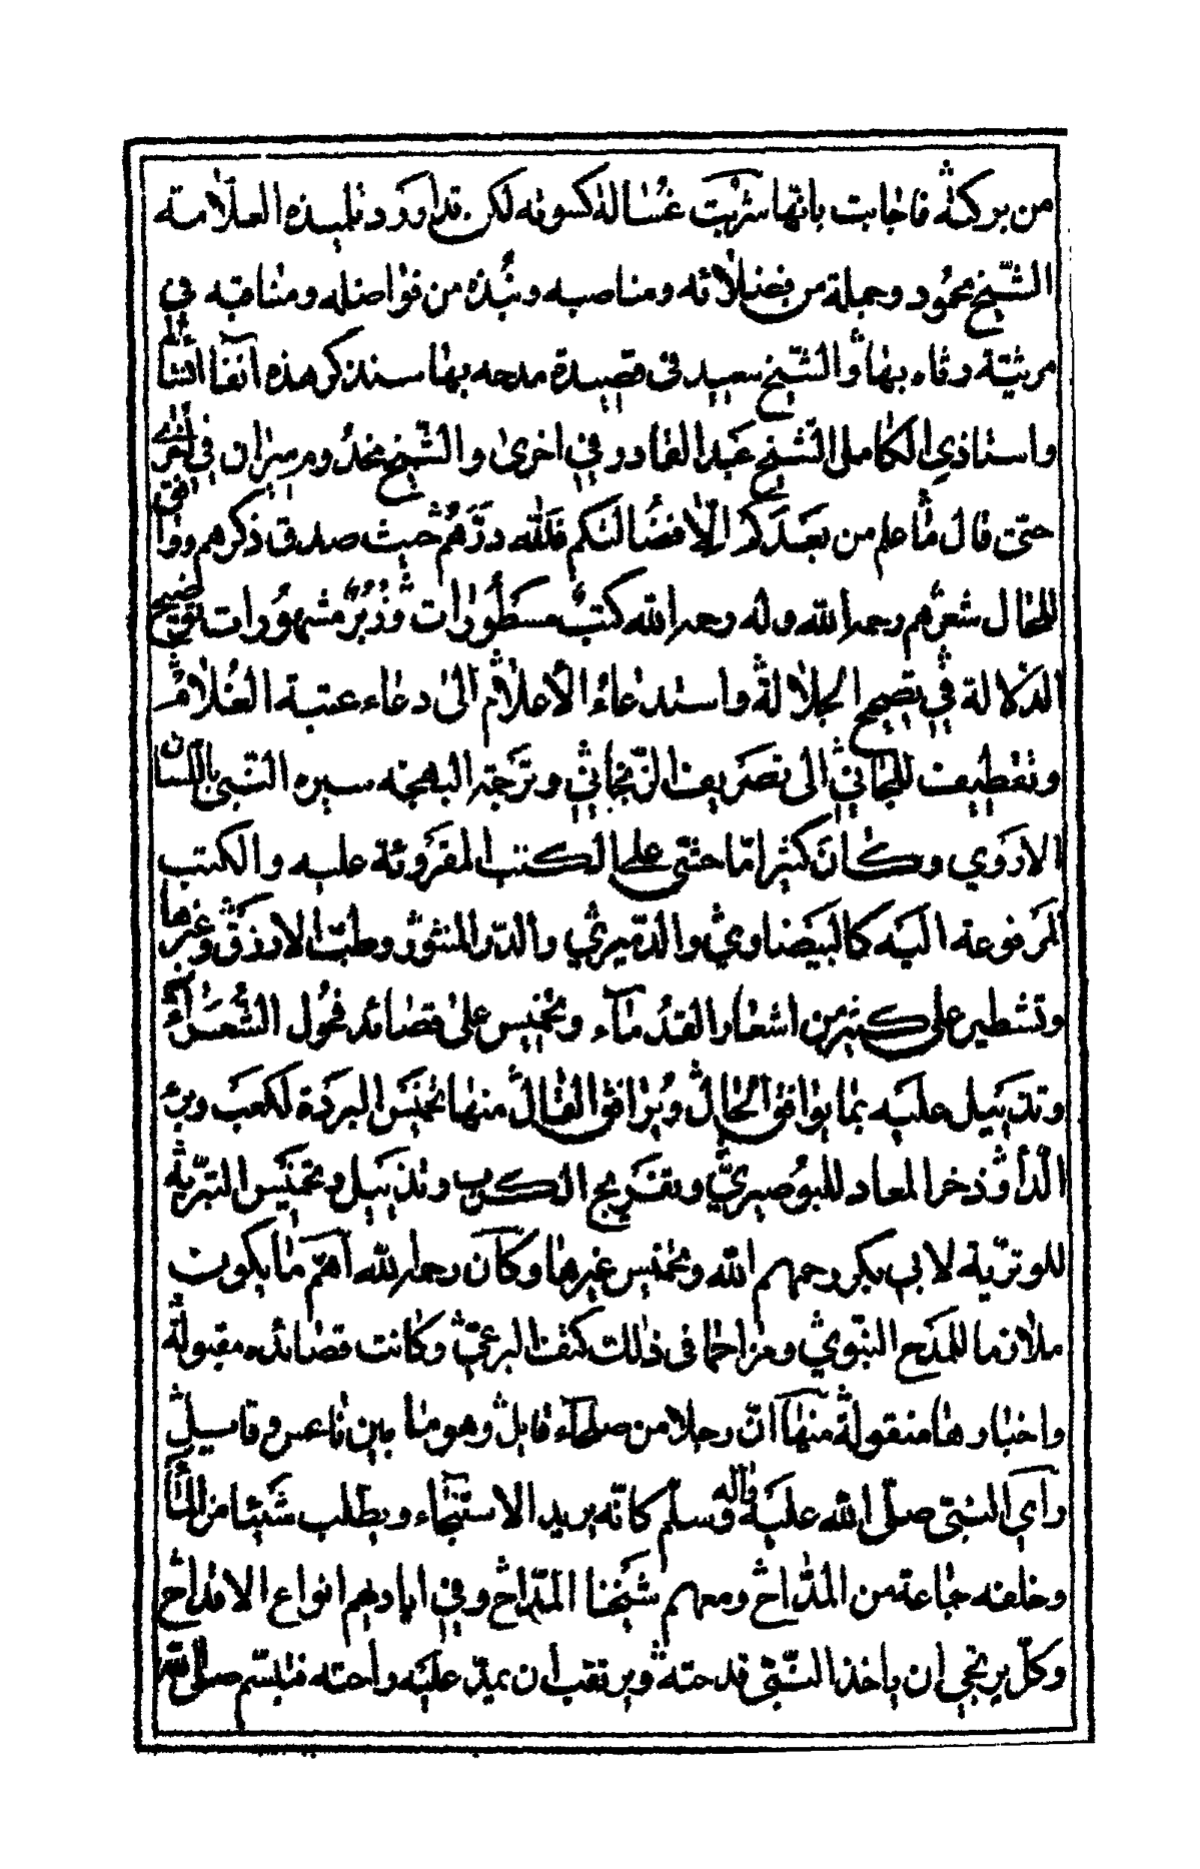 من بركته فاجابت بانها شربت غسالة كسوته لكن قد اورد تلميذه العلامة
الشيخ محمود وجملة من فضلائه ومناصبه ونبذه من فواضله ومناقبه في
مرثية وفاء بها والشيخ سعيد في قصيدة مدحه بها سنذكر هذه آنفا
واستاذي الكامل الشيخ عبد القادر في اخرى والشيخ محمد وميران في اخرى
حتى قال ما علم من بعد كم الافضالكم فلله درهم حيث صدق ذكرهم ووافق
الحال شعرهم رحمه الله وله رحمه الله كتب مسطورات وزبر مشهورات
الدلالة في تصحيح الجلالة واستدعاء الاعلام الى دعاء عتبة الغلام
وتقطيف الجاني الى تصريف الزنجاني وترجمة البهجة سيره النبي باللسان
الاروي وكان كثيرا ما حشى على الكتب المقروئة عليه والكتب
المرفوعة اليه كالبيضاوي والدميري والدر المنثور وطب الازرق وغيرها
وتشطير على كثير من اشعار القدماء وتخميس على قصائد فحول الشعراء
وتذييل عليه بما يوافق الحال ويرافق القال منها تخميس البردة لكعب وبرء
الدأ وذخر المعاد للبوصيري وتفريج الكرب وتذييل وتخميس التبرية
للوترية لابي بكر رحمهم الله وتخميس غيرها وكان رحمه الله اهم ما يكون
ملازما للمدح النبوي ومزاحما في ذلك كتف البرعي وكانت قصائده مقبولة
واخبارها منقولة منها ان رجلا من صلحاء قابل وهو ما بين ناعس وقاسيل
رأي النبي صلى الله عليه وآله وسلم كانه يريد الاستنجاء ويطلب شيئا من الماء
وخلفه جماعة من المداح ومعهم شيخنا المداح وفي اياديهم انواع الاقداح
وكل يرتجي ان ياخذ النبي قدحته ويرتقب ان يمد عليه راحته فتبسم صلى الله